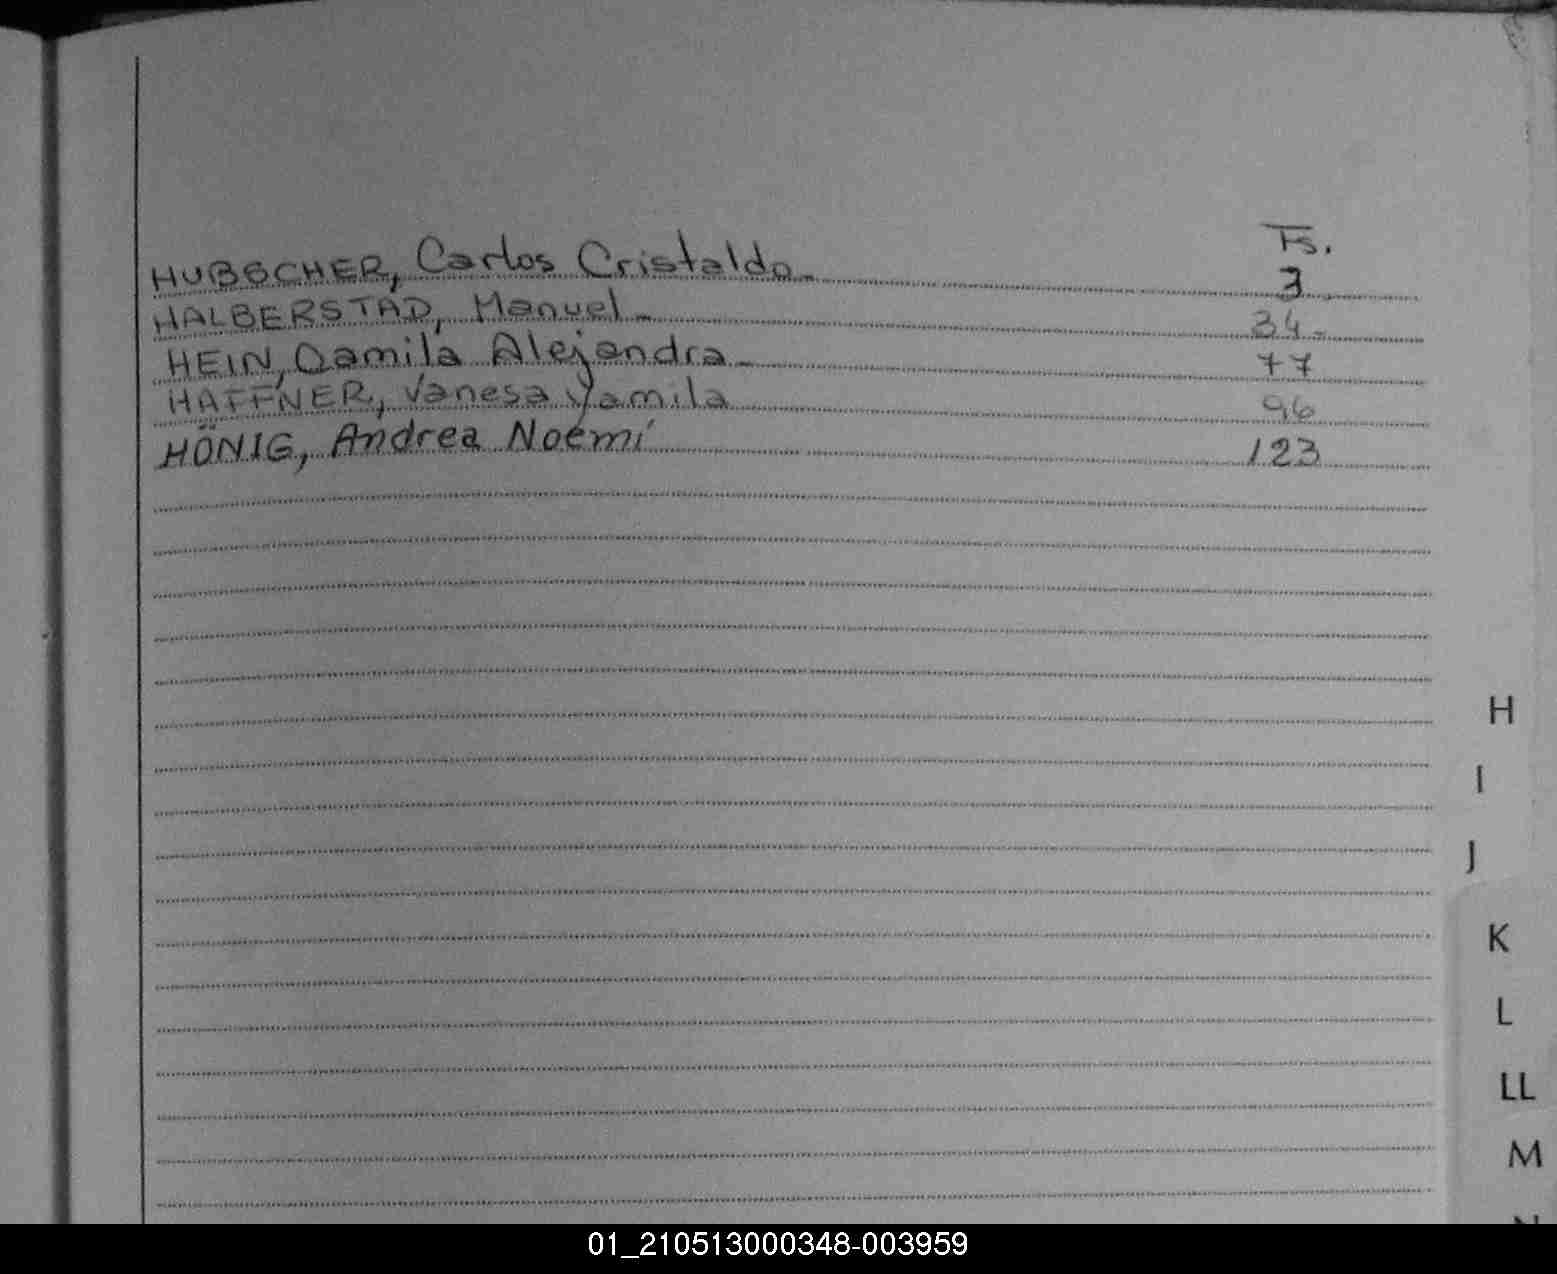 Fs.
HUBSCHER, Carlos Cristaldo. 3
HALBERSTAD, Manuel. 34-
HEIN, Camila Alejandra. 77
HAFFNER, Vanesa Yamila 96
HÖNIG, Andrea Noemí 123
H
I
J
K
L
LL
M
01_210513000348-003959